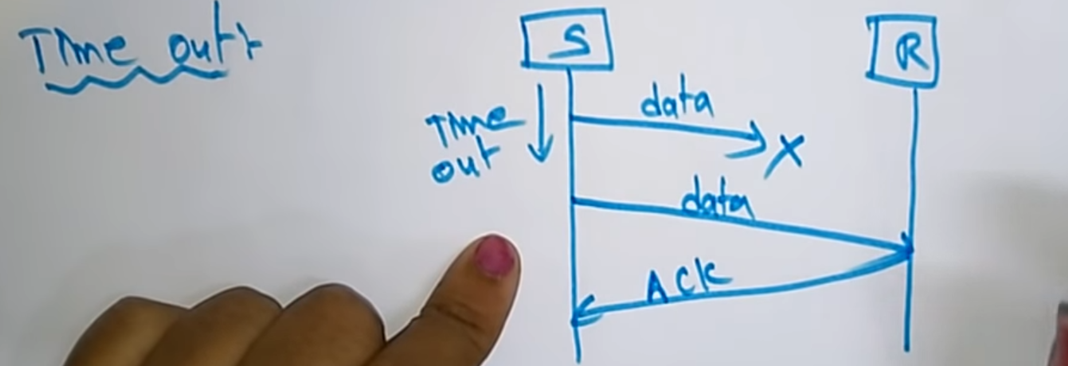 Time out:
S
R
Time
out
data
X
data
ACK